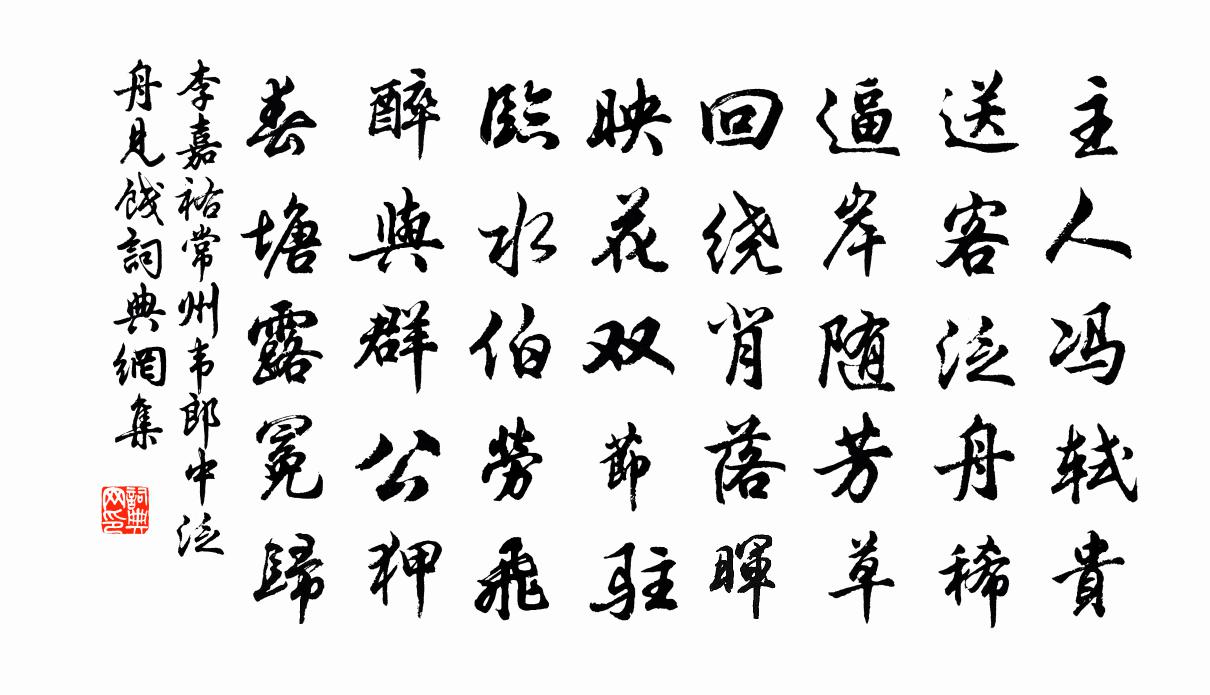 主人冯轼貴
送客泛舟稀
逼岸随芳草
回绕背落暉
映花双節駐
臨水伯勞飛
醉與群公狎
春塘露冕歸
李嘉祐常州韦郎中泛
舟見餞詞典網集
詞典网印